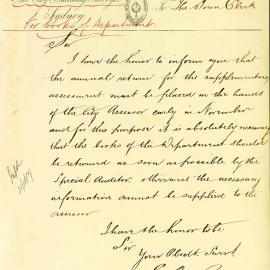 The City Building Surveyor
Sydney
To The Town Clerk
For books of Department
Sir
I have the honor to inform you that
the annual return for the supplementary
assessment must be placed in the hands
of the City Assessor early in November
and for this purpose it is absolutely necessary
that the books of the Department should
be returned as soon as possible by the
Special Auditor. otherwise the necessary
information cannot be supplied to the
assessor
I have the honor to be
Sir
Your Obedt. Servt.